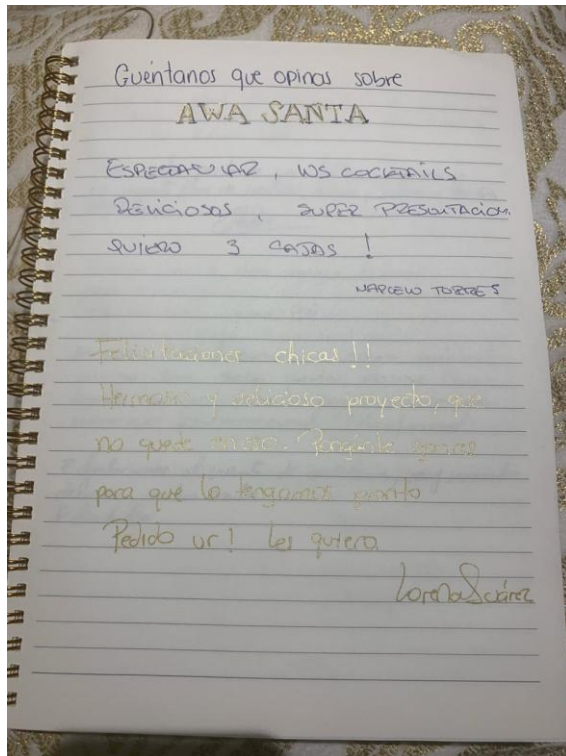 Cuéntanos que opinas sobre
AWA SANTA
ESPECTACULAR, LOS COCKTAILS
DELICIOSOS, SUPER PRESENTACION.
QUIERO 3 CAJAS!
MARCELO TORRES
Felicitaciones chicas!!
Hermoso y delicioso proyecto, que
no quede en eso. Pónganle ganas
para que lo tengamos pronto
Pedido ur! Les quiero
Lorena Suárez